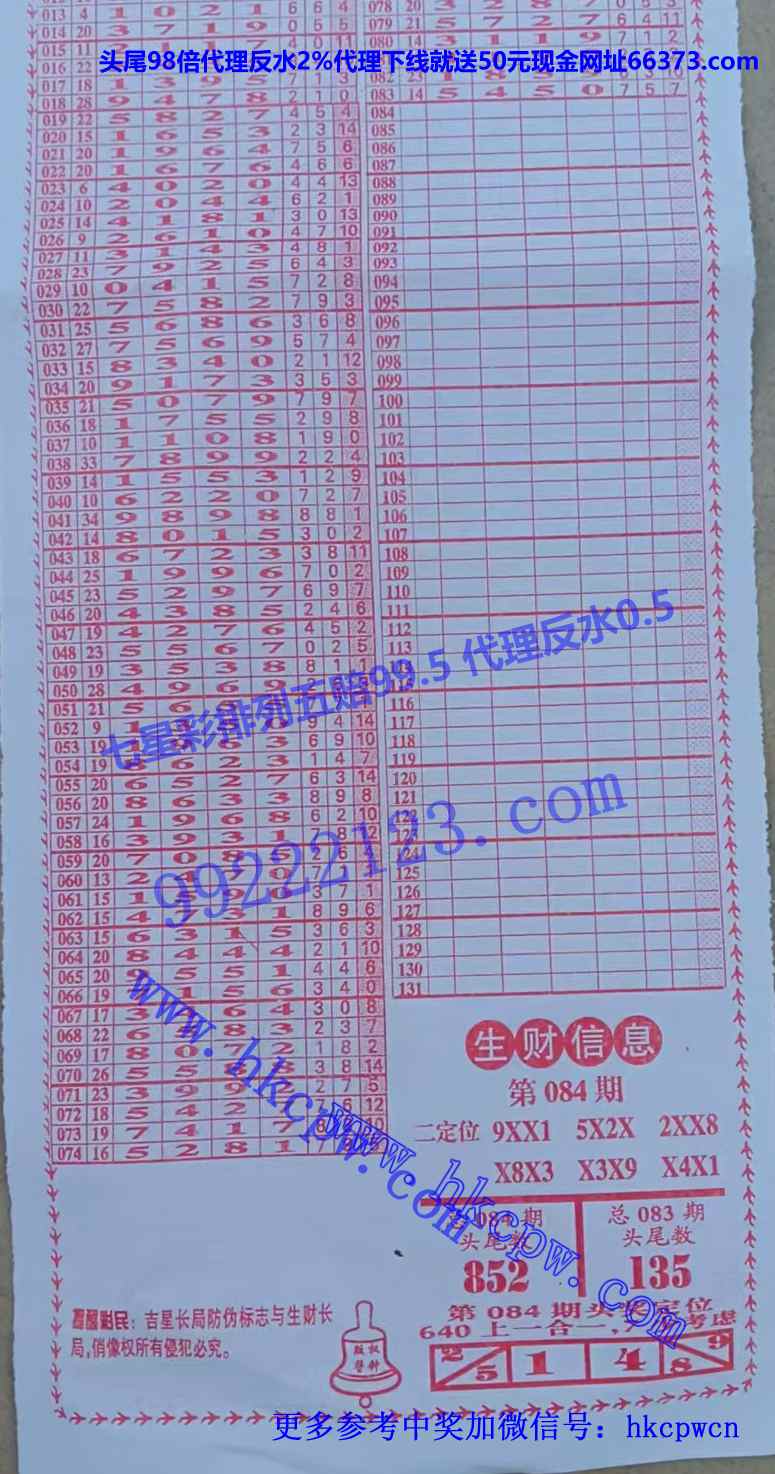 头尾98倍代理反水2%代理下线就送50元现金网址66373.com
013 4 1 0 2 1 6 6 4
014 20 3 7 1 9 0 5 5
017 18 1 3 9 5
018 28 9 4 7 8 2 1 0
019 22 5 8 2 7 4 5 4
020 15 1 6 5 3 2 3 14
021 20 1 9 6 4 7 5 6
022 20 1 6 7 6 4 6 6
023 6 4 0 2 0 4 4 13
024 10 2 0 4 4 6 2 1
025 14 4 1 8 1 3 0 13
026 9 2 6 1 0 4 7 10
027 11 3 1 4 3 4 8 1
028 23 7 9 2 5 6 4 3
029 10 0 4 1 5 7 2 8
030 22 7 5 8 2 7 9 3
031 25 5 6 8 6 3 6 8
032 27 7 5 6 9 5 7 4
033 15 8 3 4 0 2 1 12
034 20 9 1 7 3 3 5 3
035 21 5 0 7 9 7 9 7
036 18 1 7 5 5 2 9 8
037 10 1 1 0 8 1 9 0
038 33 7 8 9 9 2 2 4
039 14 1 5 5 3 1 2 9
040 10 6 2 2 0 7 2 7
041 34 9 8 9 8 8 8 1
042 14 8 0 1 5 3 0 2
043 18 6 7 2 3 3 8 11
044 25 1 9 9 6 7 0 2
045 23 5 2 9 7 6 9 7
046 20 4 3 8 5 2 4 6
047 19 4 2 7 6 4 5 2
048 23 5 5 6 7 0 2 5
049 19 3 5 3 8 8 1
050 28 4 9 6 9
051 21 5 6
052 9 9 4 14
053 19 3 6 9 10
054 19 8 6 2 3 1 4 7
055 20 6 5 2 7 6 3 14
056 20 8 6 3 3 8 9 8
057 24 1 9 6 8 6 2 10
058 16 3 9 3 1 8 12
059 20 7 0 8 5 2 6
060 13 2
061 15 1 3 7 1
062 15 4 3 1 8 9 6
063 15 6 3 1 5 3 6 3
064 20 8 4 4 4 2 1 10
065 20 9 5 5 1 4 4 6
066 19 1 5 6 3 4 0
067 17 3 6 4 3 0 8
068 22 6 8 3 2 3 7
069 17 8 0 7 2 1 8 2
070 26 5 5 8 3 8 14
071 23 3 9 9 2 2 7 5
072 18 5 4 2 12
073 19 7 4 1 7
074 16 5 2 8 1
078 20 3 2 8 7 0 5 3
079 21 5 7 2 7 6 4 11
080 14 3 1 1 9 7 1 2
083 14 5 4 5 0 7 5 7
084
085
086
087
088
089
090
091
092
093
094
095
096
097
098
099
100
101
102
103
104
105
106
107
108
109
110
111
112
113
115
116
117
118
119
120
121
122
123
124
125
126
127
128
129
130
131
七星彩排列五赔99.5 代理反水0.5
99222123.com
www.hkcpw.com
www.hkcpw.com
生财信息
第 084 期
二定位 9XX1 5X2X 2XX8
X8X3 X3X9 X4X1
084 期
头尾数
852
总 083 期
头尾数
135
第 084 期头奖定位
640 上一合一,
2 5 1 4 8 9
提醒彩民：吉星长局防伪标志与生财长
局,俏像权所有侵犯必究。
版权
警钟
更多参考中奖加微信号：hkcpwcn